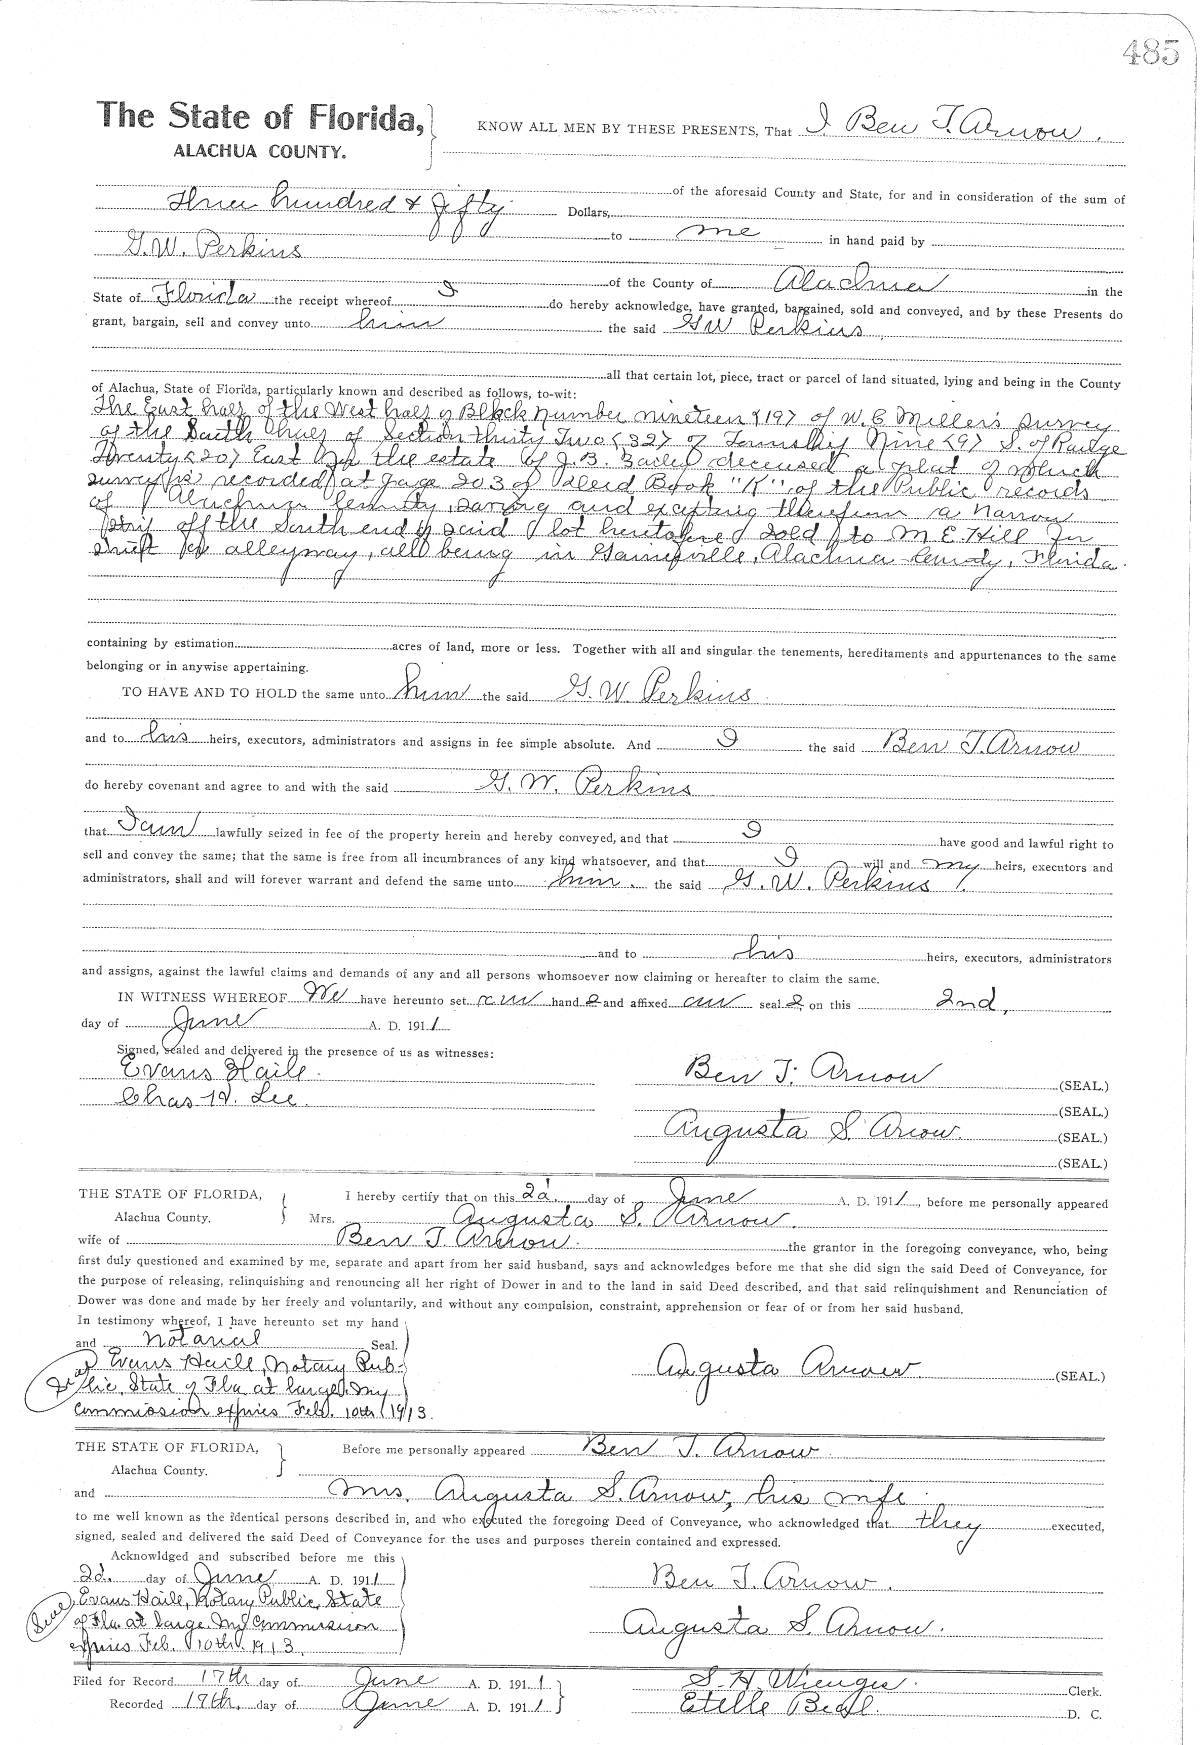 485
The State of Florida, KNOW ALL MEN BY THESE PRESENTS, That I Ben T. Arnow.
ALACHUA COUNTY.
of the aforesaid County and State, for and in consideration of the sum of
Three hundred & fifty Dollars,
to me in hand paid by
G.W. Perkins
of the County of Alachua in the
State of Florida the receipt whereof I do hereby acknowledge, have granted, bargained, sold and conveyed, and by these Presents do
grant, bargain, sell and convey unto him the said G W Perkins
all that certain lot, piece, tract or parcel of land situated, lying and being in the County
of Alachua, State of Florida, particularly known and described as follows, to-wit:
The East half of the West half of Block Number nineteen <19> of W. E Miller's survey
of the South half of Section thirty Two <32> of Township Nine <9> S. of Range
Twenty <20> East of the estate of J. B. Bailey deceased a plat of which
survey is recorded at page 203 of Deed Book "K" of the Public records
of Alachua County, saving and excepting therefrom a narrow
strip off the South end of said lot heretofore sold to M. E. Hill for
for alleyway, all being in Gainesville, Alachua County, Florida.
containing by estimation acres of land, more or less. Together with all and singular the tenements, hereditaments and appurtenances to the same
belonging or in anywise appertaining.
TO HAVE AND TO HOLD the same unto him the said G. W. Perkins
and to his heirs, executors, administrators and assigns in fee simple absolute. And I the said Ben T. Arnow
do hereby covenant and agree to and with the said G. W. Perkins
that I am lawfully seized in fee of the property herein and hereby conveyed, and that I have good and lawful right to
sell and convey the same; that the same is free from all incumbrances of any kind whatsoever, and that I will and my heirs, executors and
administrators, shall and will forever warrant and defend the same unto him. the said G. W. Perkins
and to his heirs, executors, administrators
and assigns, against the lawful claims and demands of any and all persons whomsoever now claiming or hereafter to claim the same.
IN WITNESS WHEREOF We have hereunto set our hand s and affixed our seal s on this 2nd,
day of June A. D. 1911
Signed, sealed and delivered in the presence of us as witnesses:
Evans Haile. Ben T. Arnow (SEAL.)
Chas W. Lee. (SEAL.)
Augusta S. Arnow. (SEAL.)
(SEAL.)
THE STATE OF FLORIDA, I hereby certify that on this 2d. day of June A. D. 1911, before me personally appeared
Alachua County. Mrs. Augusta S. Arnow.
wife of Ben T. Arnow. the grantor in the foregoing conveyance, who, being
first duly questioned and examined by me, separate and apart from her said husband, says and acknowledges before me that she did sign the said Deed of Conveyance, for
the purpose of releasing, relinquishing and renouncing all her right of Dower in and to the land in said Deed described, and that said relinquishment and Renunciation of
Dower was done and made by her freely and voluntarily, and without any compulsion, constraint, apprehension or fear of or from her said husband.
In testimony whereof, I have hereunto set my hand
and Notarial Seal.
Evans Haile, Notary Pub- Augusta Arnow (SEAL.)
Seal lic, State of Fla. at large. My
commission expires Feb. 10th 1913.
THE STATE OF FLORIDA, Before me personally appeared Ben T. Arnow
Alachua County.
and Mrs. Augusta S. Arnow, his wife
to me well known as the identical persons described in, and who executed the foregoing Deed of Conveyance, who acknowledged that they executed,
signed, sealed and delivered the said Deed of Conveyance for the uses and purposes therein contained and expressed.
Acknowldged and subscribed before me this
2d. day of June A. D. 1911 Ben T. Arnow.
Evans Haile, Notary Public, State
Seal of Fla. at large. My Commission Augusta S. Arnow.
expires Feb. 10th. 1913.
Filed for Record 17th day of June A. D. 1911 S. H. Wienges Clerk.
Recorded 17th, day of June A. D. 1911 Estelle D. C.